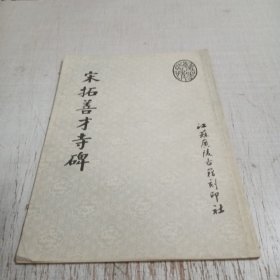 宋拓善才寺碑
江苏广陵古籍刻印社